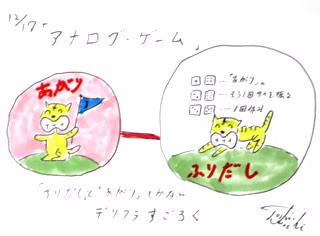 12/17
「アナログ・ゲーム」
あがり
「あがり」
もう1回サイを振る
1回休み
ふりだし
「ふりだし」と「あがり」しかない
デリフラすごろく